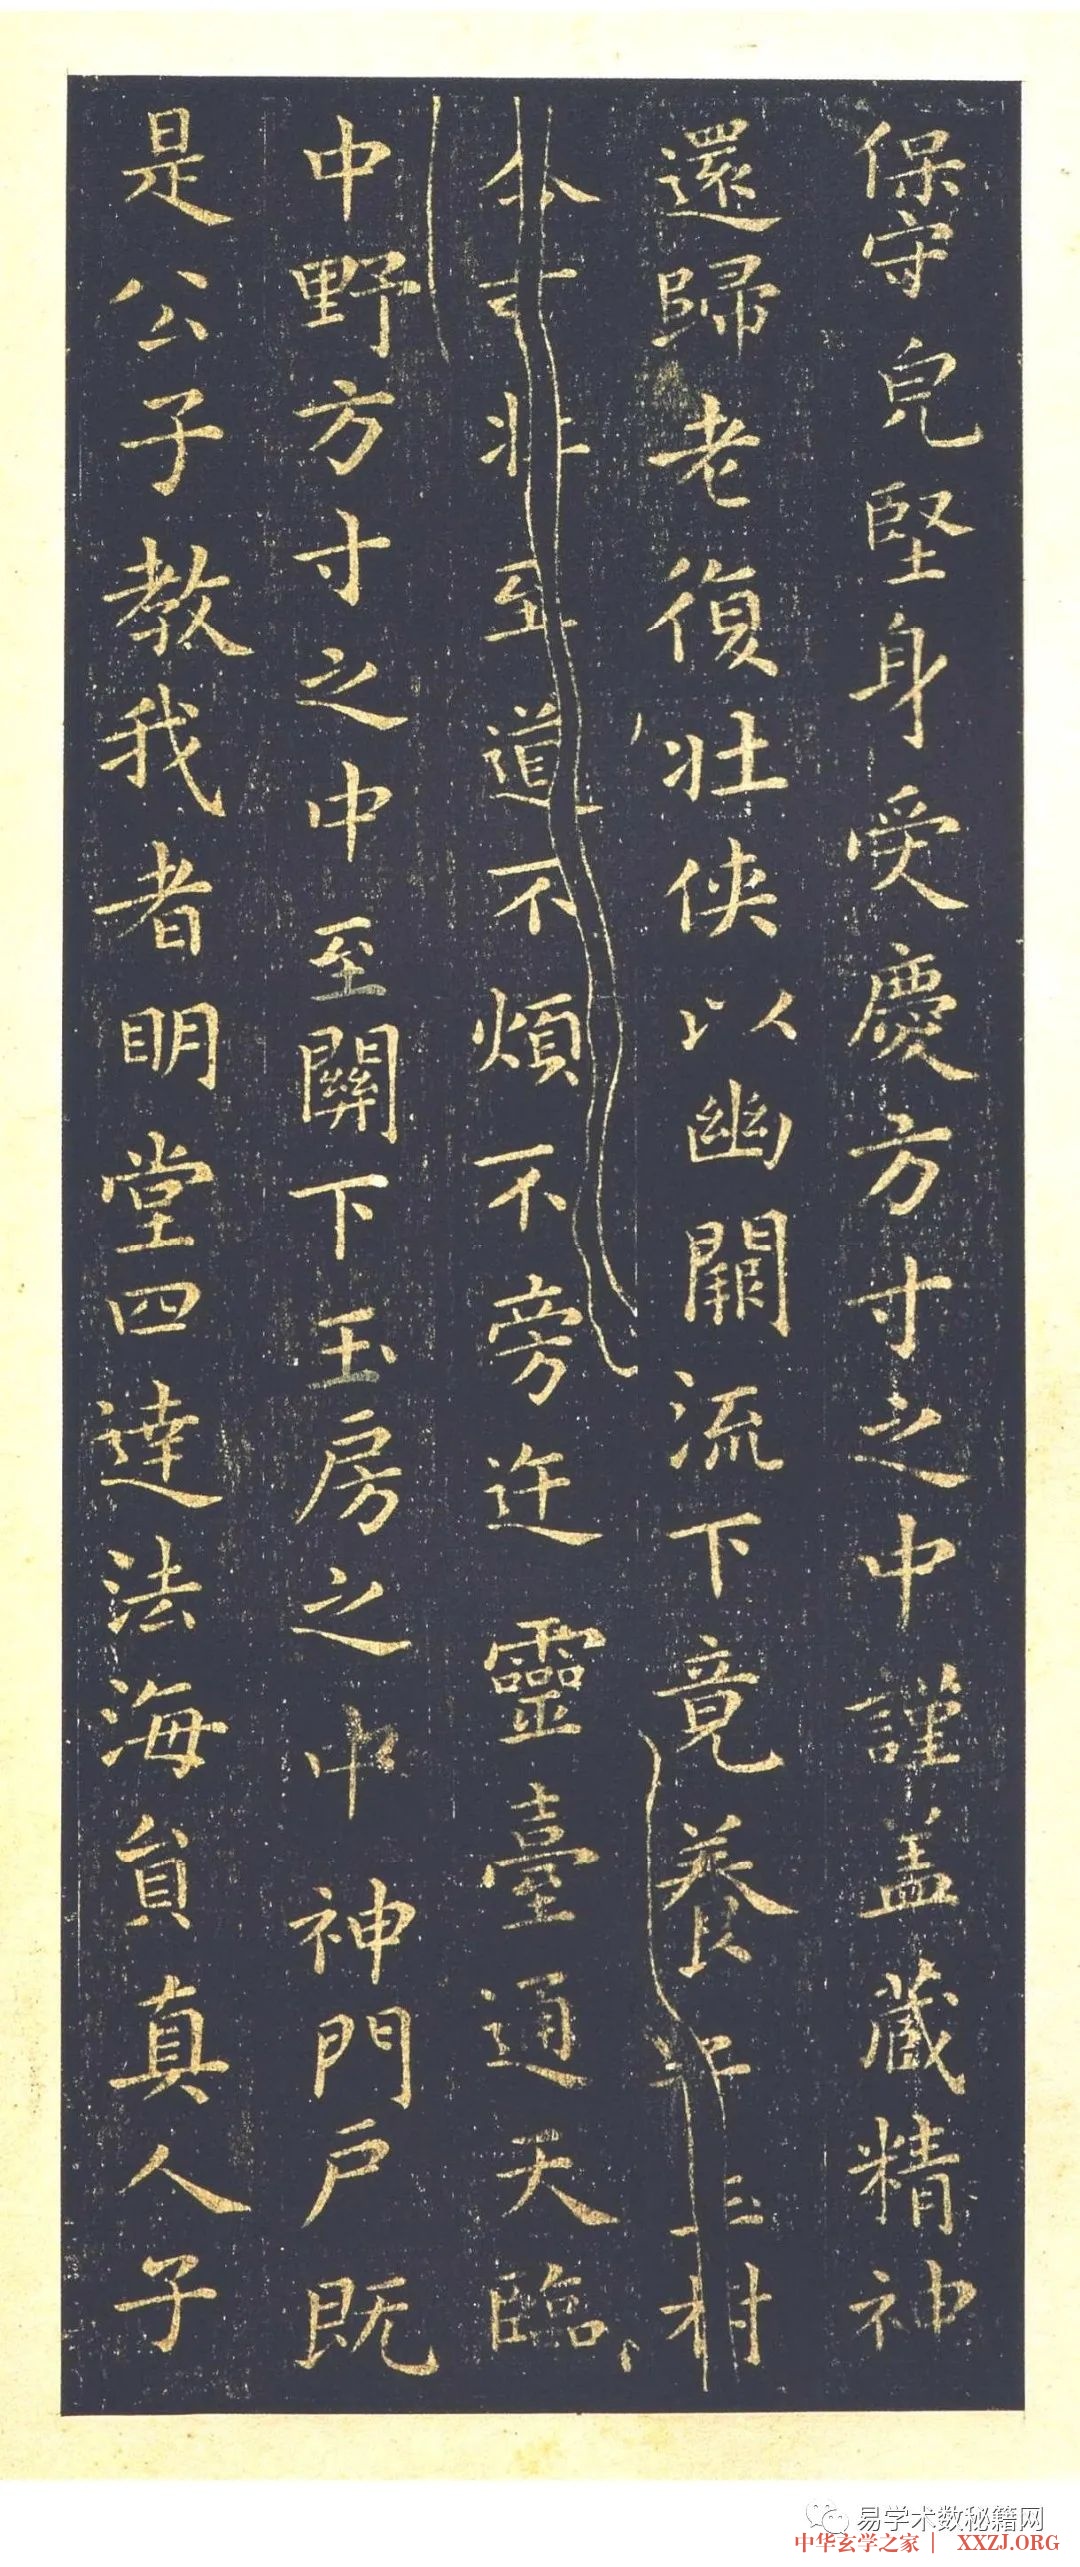 保守皃堅身受慶方寸之中謹盖藏精神
還歸老復壯俠以幽闕流下竟養
至道不煩不旁迕靈臺通天臨
中野方寸之中至關下玉房之中神門戶既
是公子教我者明堂四達法海員真人子
易学术数秘籍网
中华玄学之家| XXZJ.ORG